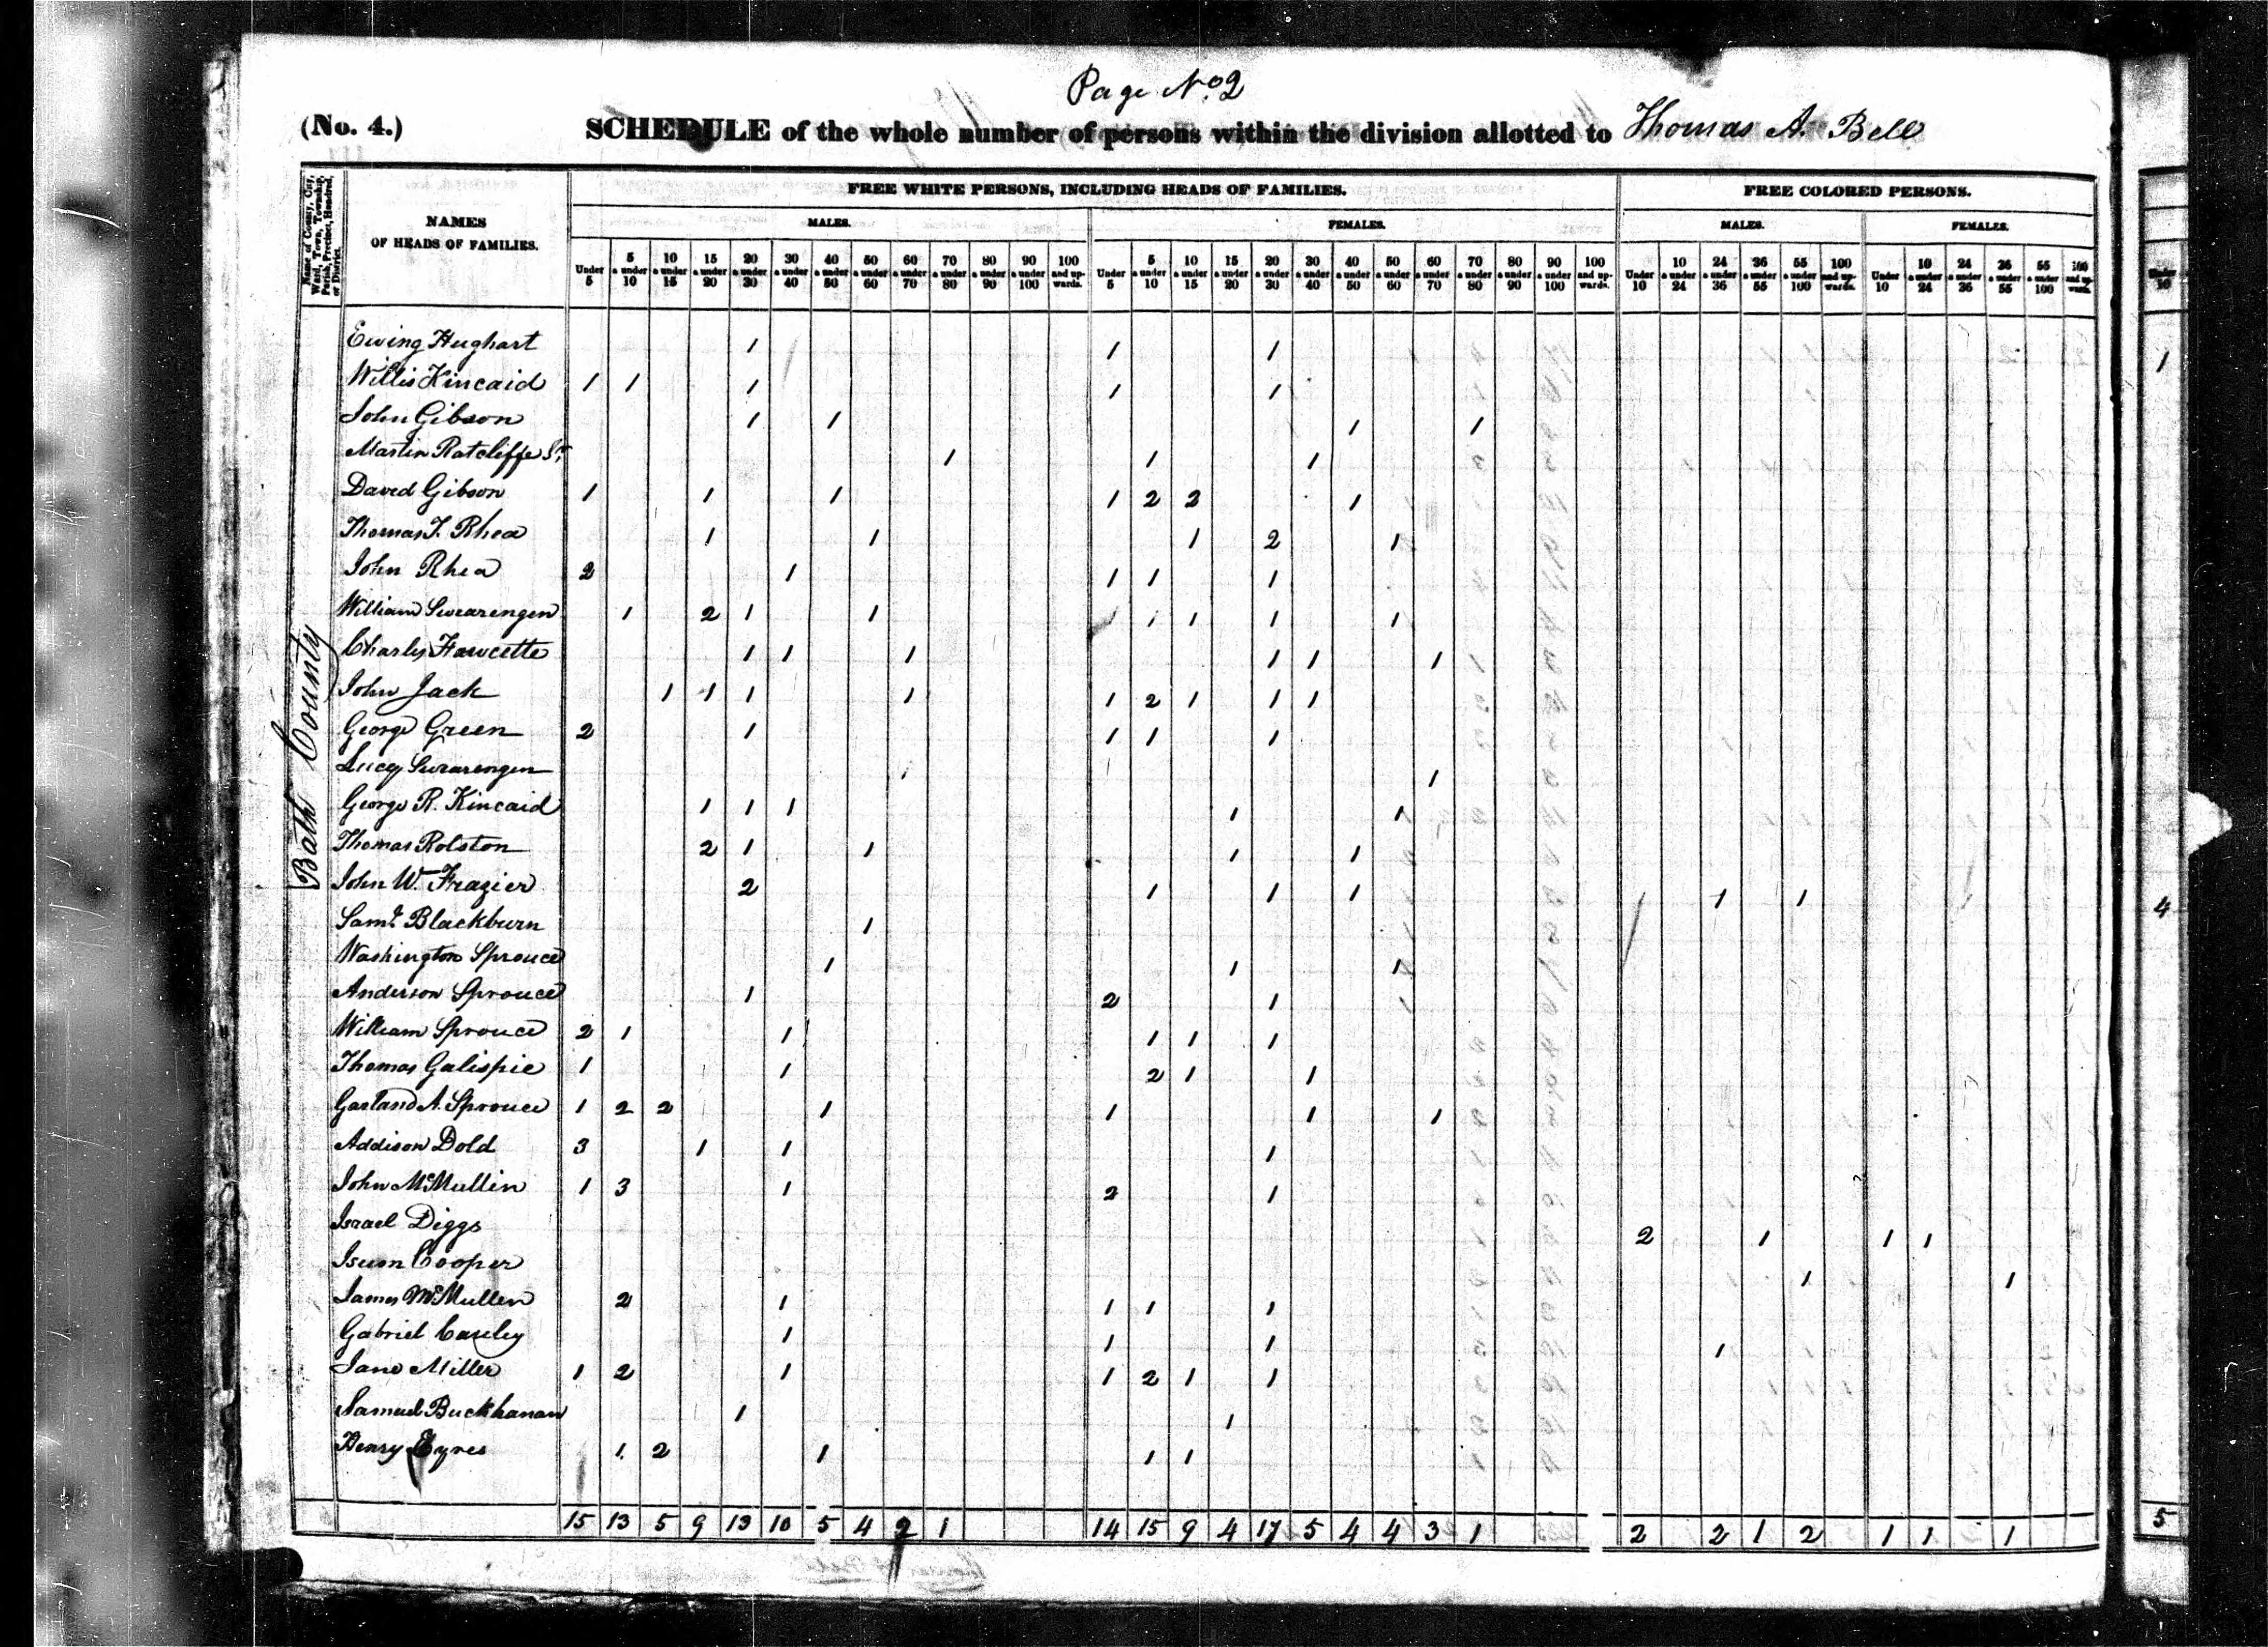 Page No. 2
(No. 4.) SCHEDULE of the whole number of persons within the division allotted to Thomas A. Bell
Name of County, City, Ward, Town, Township, Parish, Precinct, Hundred, or District.
NAMES OF HEADS OF FAMILIES.
FREE WHITE PERSONS, INCLUDING HEADS OF FAMILIES.
FREE COLORED PERSONS.
MALES. FEMALES. MALES. FEMALES.
Under 5 | 5 & under 10 | 10 & under 15 | 15 & under 20 | 20 & under 30 | 30 & under 40 | 40 & under 50 | 50 & under 60 | 60 & under 70 | 70 & under 80 | 80 & under 90 | 90 & under 100 | 100 and upwards. | Under 5 | 5 & under 10 | 10 & under 15 | 15 & under 20 | 20 & under 30 | 30 & under 40 | 40 & under 50 | 50 & under 60 | 60 & under 70 | 70 & under 80 | 80 & under 90 | 90 & under 100 | 100 and upwards. | Under 10 | 10 & under 24 | 24 & under 36 | 36 & under 55 | 55 & under 100 | 100 and upwards. | Under 10 | 10 & under 24 | 24 & under 36 | 36 & under 55 | 55 & under 100 | 100 and upward.
Bath County
Ewing Hughart 1 1 1
Willis Kincaid 1 1 1 1 1
John Gibson 1 1 1 1
Martin Ratcliffe Sr. 1 1 1
David Gibson 1 1 1 1 2 2 1
Thomas T. Rhea 1 1 1 2 1
John Rhea 2 1 1 1 1
William Swearengen 1 2 1 1 1 1 1 1
Charles Fawcette 1 1 1 1 1 1
John Jack 1 1 1 1 1 2 1 1 1
George Green 2 1 1 1 1
Lucy Swearengen 1
George R. Kincaid 1 1 1 1 1
Thomas Rolston 2 1 1 1 1
John W. Frazier 2 1 1 1 1 1
Saml. Blackburn 1
Washington Sprouce 1 1 1
Anderson Sprouce 1 2 1
William Sprouce 2 1 1 1 1 1
Thomas Galispie 1 1 2 1 1
Garland A. Sprouce 1 2 2 1 1 1 1
Addison Dold 3 1 1 1
John McMullin 1 3 1 2 1
Israel Diggs 2 1 1 1
Isum Cooper 1 1
James McMullen 2 1 1 1 1
Gabriel Caseley 1 1 1 1
Jane Miller 1 2 1 1 2 1 1
Samuel Buckhanan 1 1
Henry Eyres 1 2 1 1 1
15 13 5 9 13 10 5 4 2 1 14 15 9 4 17 5 4 4 3 1 2 2 1 2 1 1 1
1
4
5